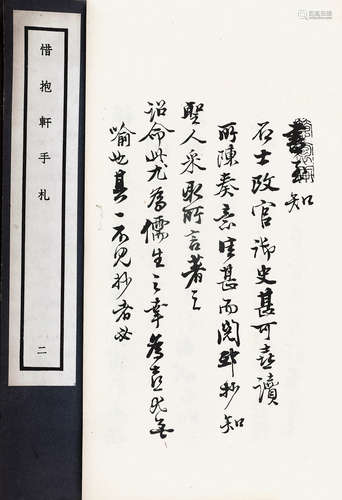 惜抱軒手札
二
書至知
石士改官御史甚可喜讀
所陳奏意佳甚而閱邸抄知
聖人采取所言著之
詔命此尤為儒生之幸為喜尤無
喻也其一不見抄者必